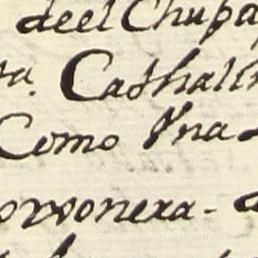 deel Chupa
ta. Cathali
Como Vna
orvonera. a